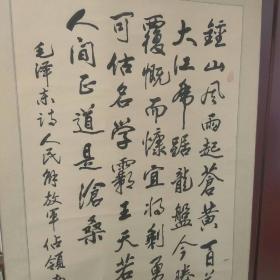 鍾山風雨起蒼黃百
大江虎踞龍盤今勝
覆慨而慷宜將剩勇
可沽名學霸王天若
人間正道是滄桑
毛澤東詩人民解放軍佔領